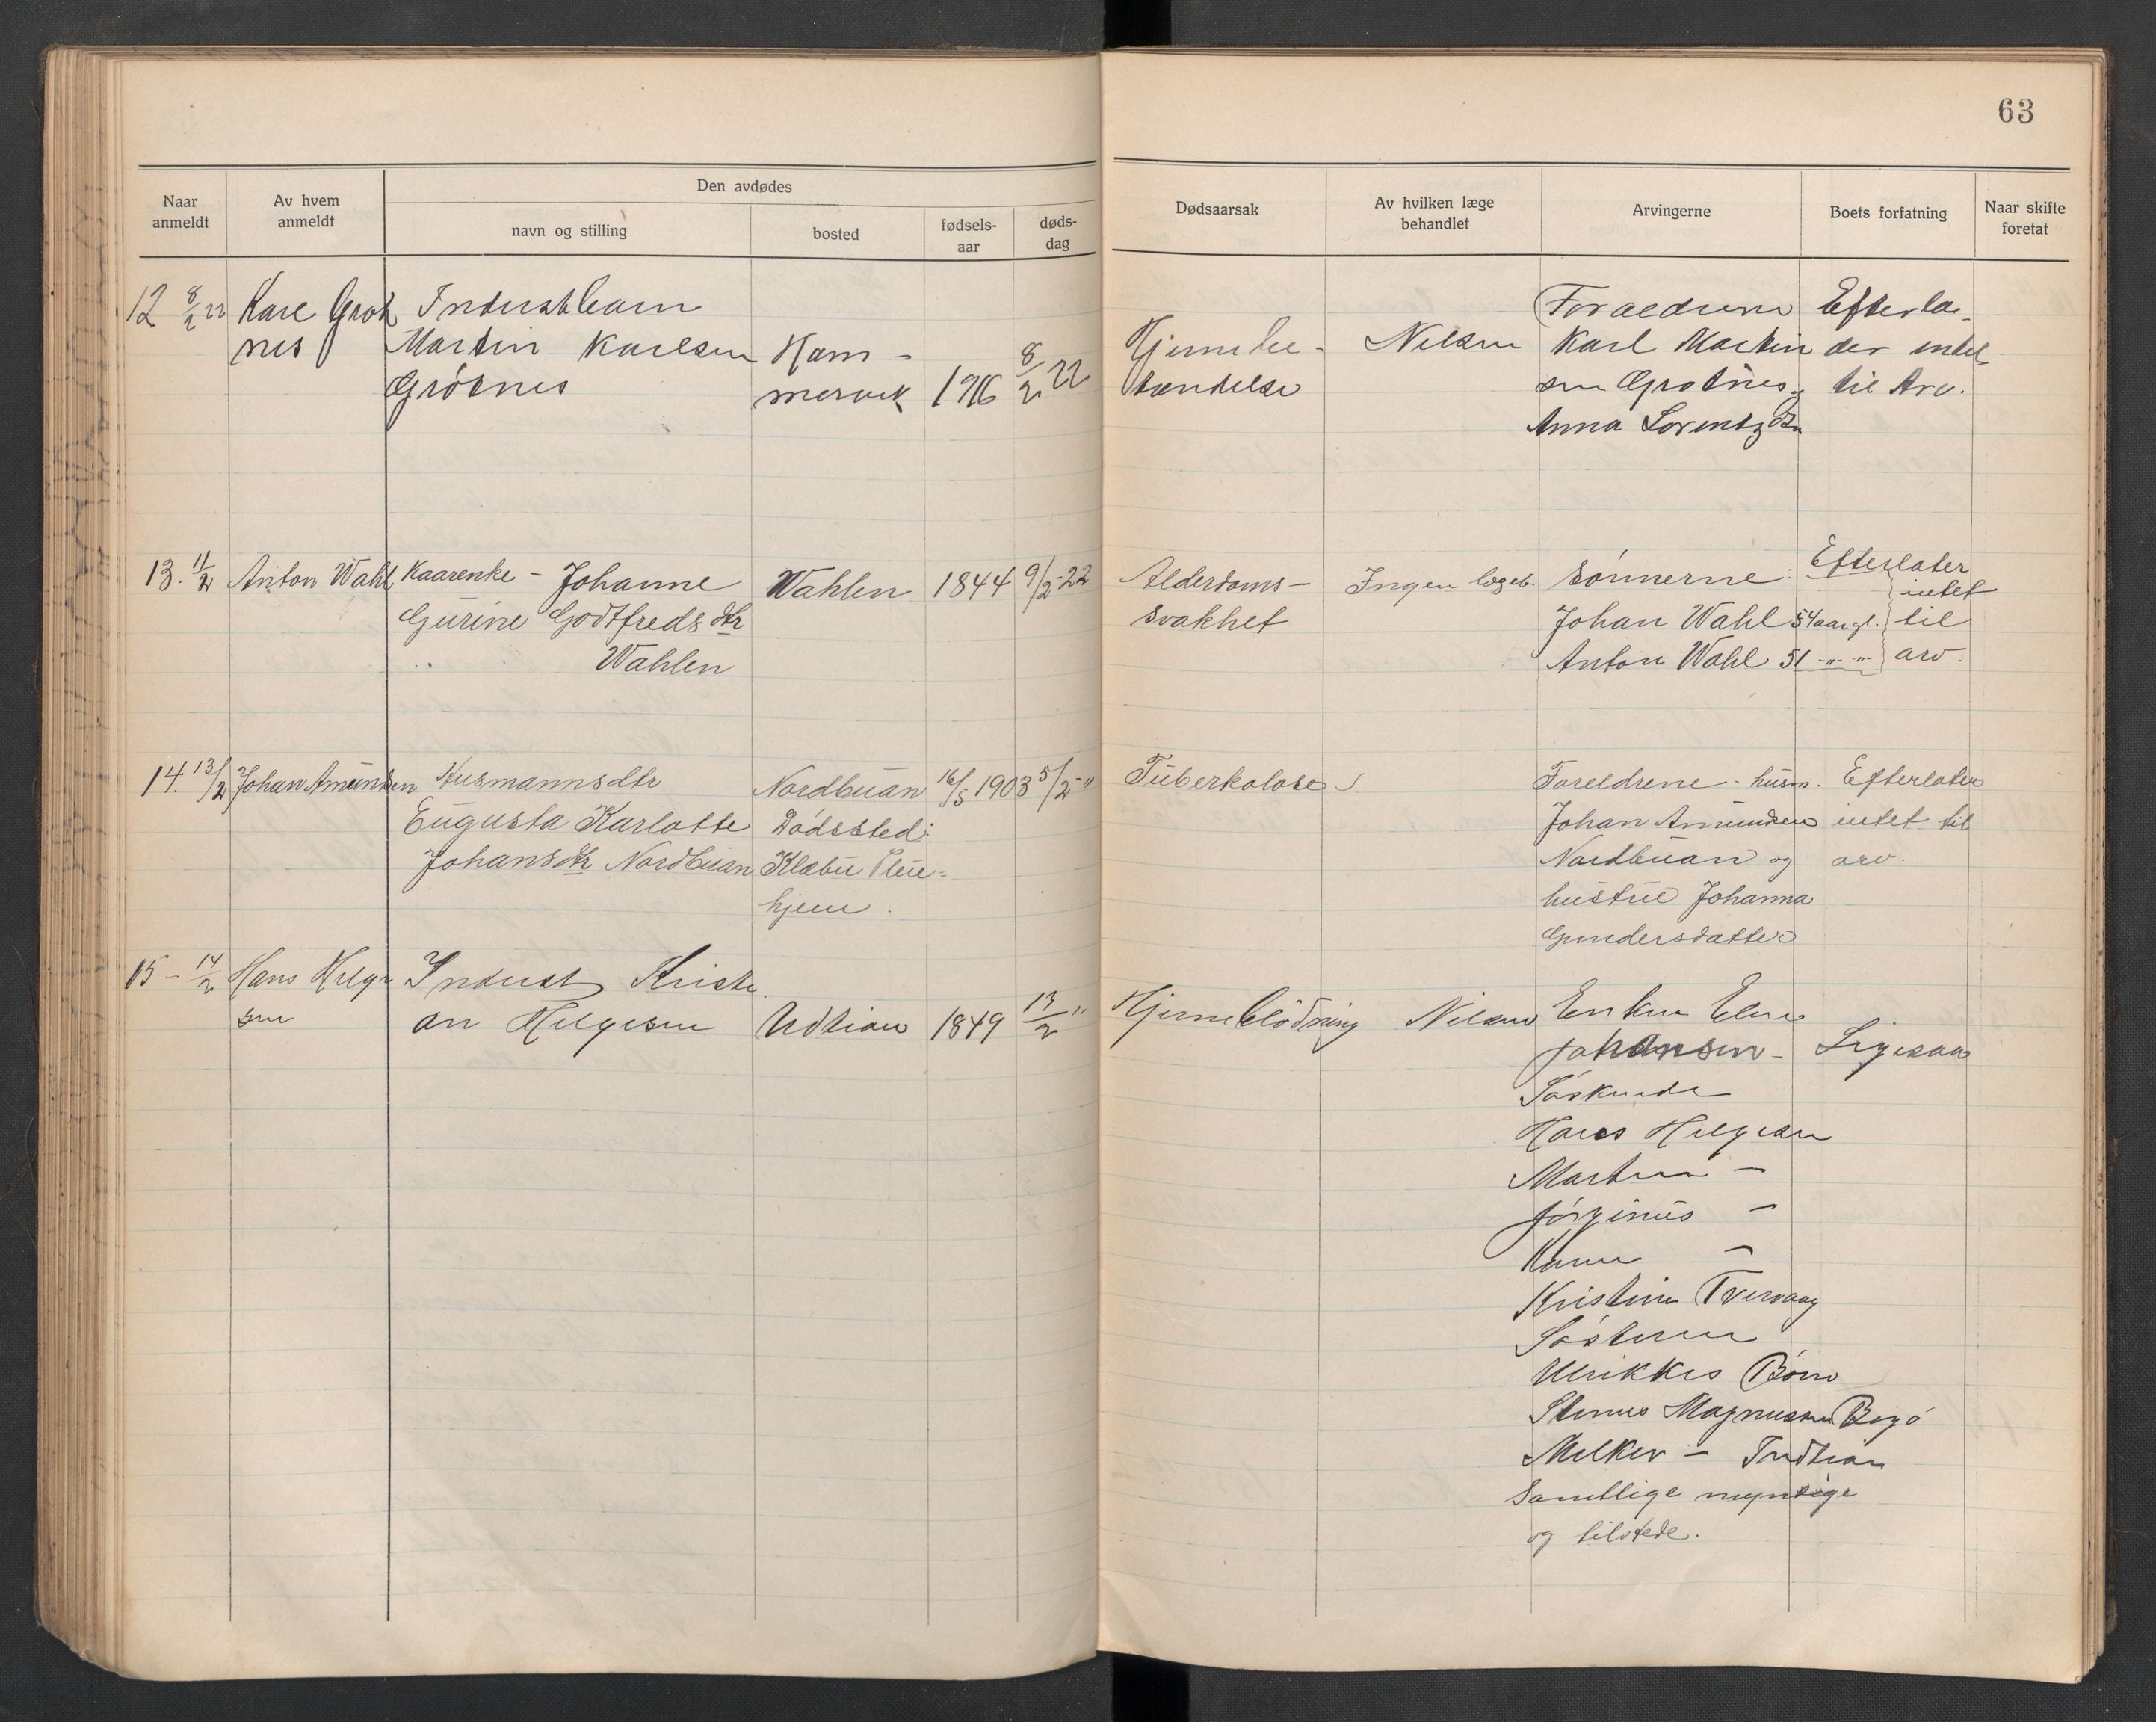 63
Naar anmeldt
Av hvem anmeldt
Den avdødes
navn og stilling
bosted
fødsels-aar
døds-dag
Dødsaarsak
Av hvilken læge behandlet
Arvingerne
Boets forfatning
Naar skifte foretat
12 8/2 22 Karl Grøt
nes
Inderstbarn
Martin Karlsen
Grøtnes
Ham-
mervik
1916
8/2 22
Hjernebe-
tændelse
Nilsen
Foraeldrene
Karl Martin
sen Grøtnes
Anna Lorentzdtr
Efterla-
der intet
til Arv.
13. 11/2 Anton Wahl
Kaarenke - Johanne
Gurine Godtfredsdtr
Wahlen
Wahlen
1844
9/2-22
Alderdoms-
svakhet
Ingen lægeb.
Sønnerne:
Johan Wahl 54 aar gl.
Anton Wahl 51 -"- -"-
Efterlater
intet
til
arv.
14. 13/2 Johan Amundsen
Husmannsdtr
Eugusta Karlotte
Johansdtr Nordbuan
Nordbuan
Dødssted:
Klæbu Pleie-
hjem.
16/5 1903
5/2-"
Tuberkolose
Foreldrene - husm.
Johan Amundsen
Nordbuan og
hustru Johanna
Gundersdatter
Efterlater
intet til
arv.
15 - 14/2 Hans Helge
sen
Inderst Kristi
an Helgesen
Udtian
1849
13/2 "
Hjerneblødning
Nilsen
Enken Elen
Johansen -
Søskende
Hans Helgesen
Martin -
Jørginus -
-
Kristine Tvervaag
Søsteren
Ulrikkes Børn
Magnusen
Melker - Indtian
Samtlige myndige
og tilstede.